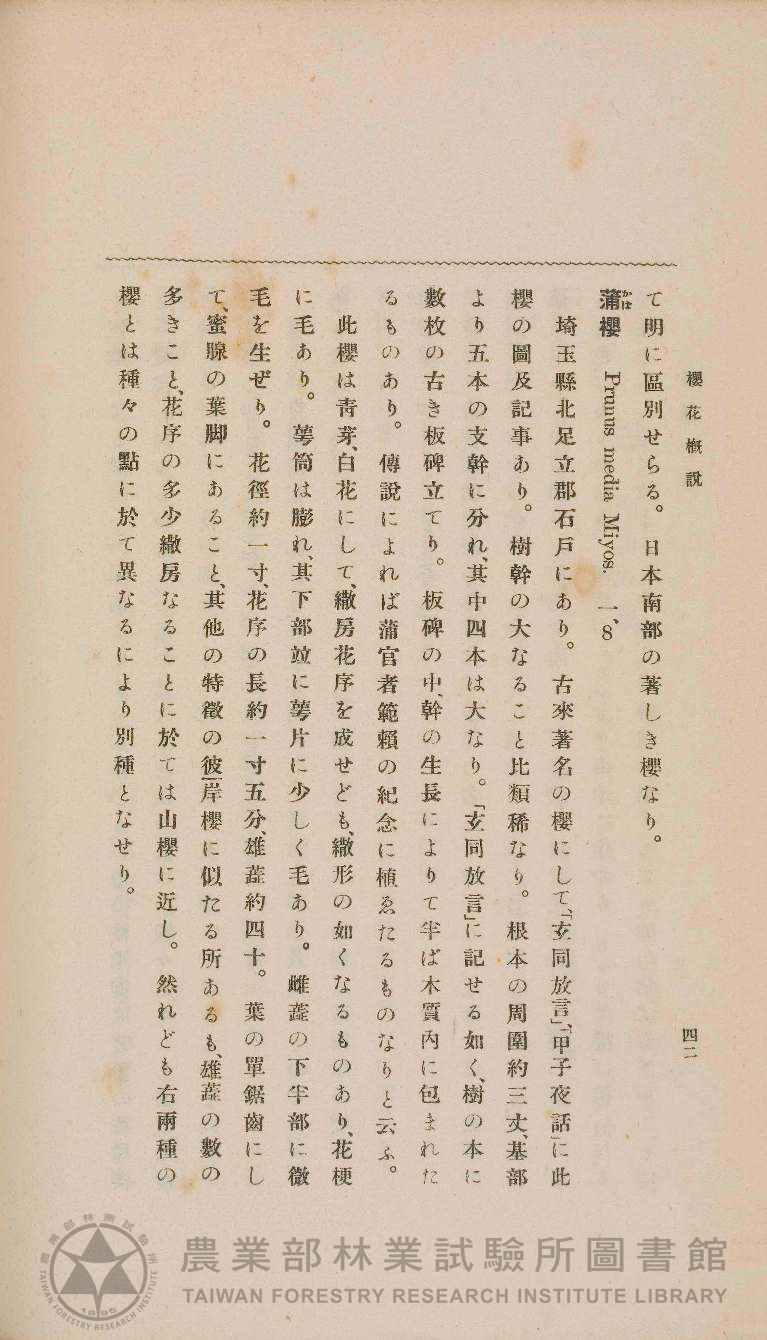 櫻花概說
四二
て明に區別せらる。日本南部の著しき櫻なり。
蒲櫻 Prunus media Miyos. 一、8
かは
埼玉縣北足立郡石戶にあり。古來著名の櫻にして、「玄同放言」、「甲子夜話」に此
櫻の圖及記事あり。樹幹の大なること比類稀なり。根本の周圍約三丈、基部
より五本の支幹に分れ、其中四本は大なり。「玄同放言」に記せる如く、樹の本に
數枚の古き板碑立てり。板碑の中、幹の生長によりて半ば木質內に包まれた
るものあり。傳說によれば蒲官者範賴の紀念に植ゑたるものなりと云ふ。
此櫻は靑芽、白花にして、繖房花序を成せども、繖形の如くなるものあり、花梗
に毛あり。萼筒は膨れ、其下部竝に萼片に少しく毛あり。雌蕋の下半部に微
毛を生ぜり。花徑約一寸、花序の長約一寸五分、雄蕋約四十。葉の單鋸齒にし
て、蜜腺の葉脚にあること、其他の特徵の彼岸櫻に似たる所あるも、雄蕋の數の
多きこと、花序の多少繖房なることに於ては山櫻に近し。然れども右兩種の
櫻とは種々の點に於て異なるにより別種となせり。
農業部林業試驗所圖書館
TAIWAN FORESTRY RESEARCH INSTITUTE LIBRARY
農業部林業試驗所
TAIWAN FORESTRY RESEARCH INSTITUTE
1896